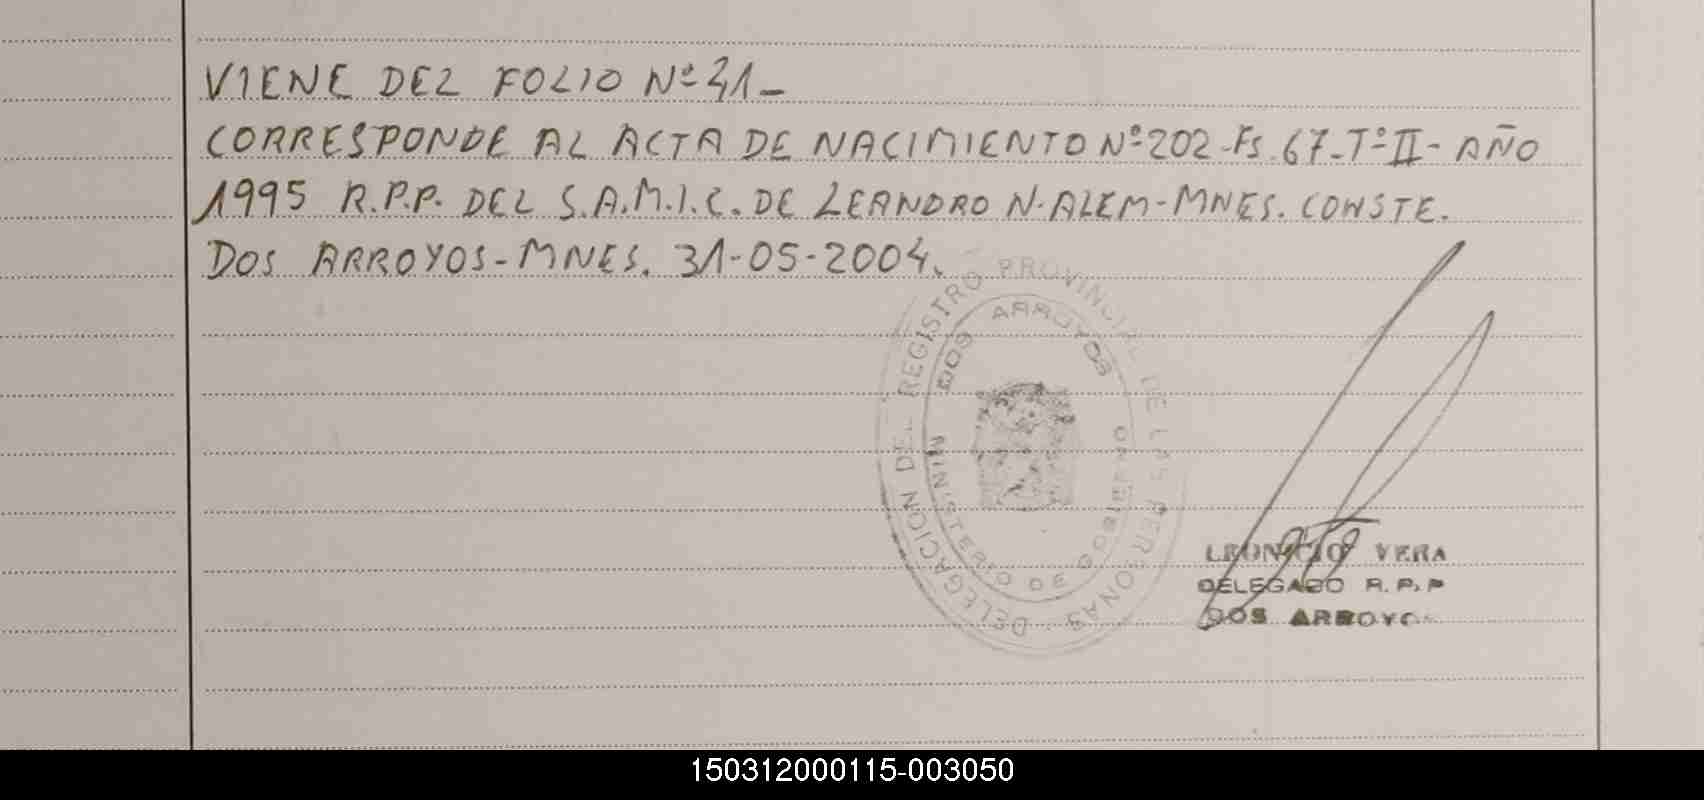 VIENE DEL FOLIO Nº 31-
CORRESPONDE AL ACTA DE NACIMIENTO Nº 202-Fs. 67-Tº II- AÑO
1995 R.P.P. DEL S.A.M.I.C. DE LEANDRO N. ALEM-MNES. CONSTE.
DOS ARROYOS-MNES. 31-05-2004.
DELEGACION DEL REGISTRO PROVINCIAL DE LAS PERSONAS
DOS ARROYOS
MINISTERIO DE GOBIERNO
VERA
DELEGADO R.P.P
DOS ARROYOS
150312000115-003050